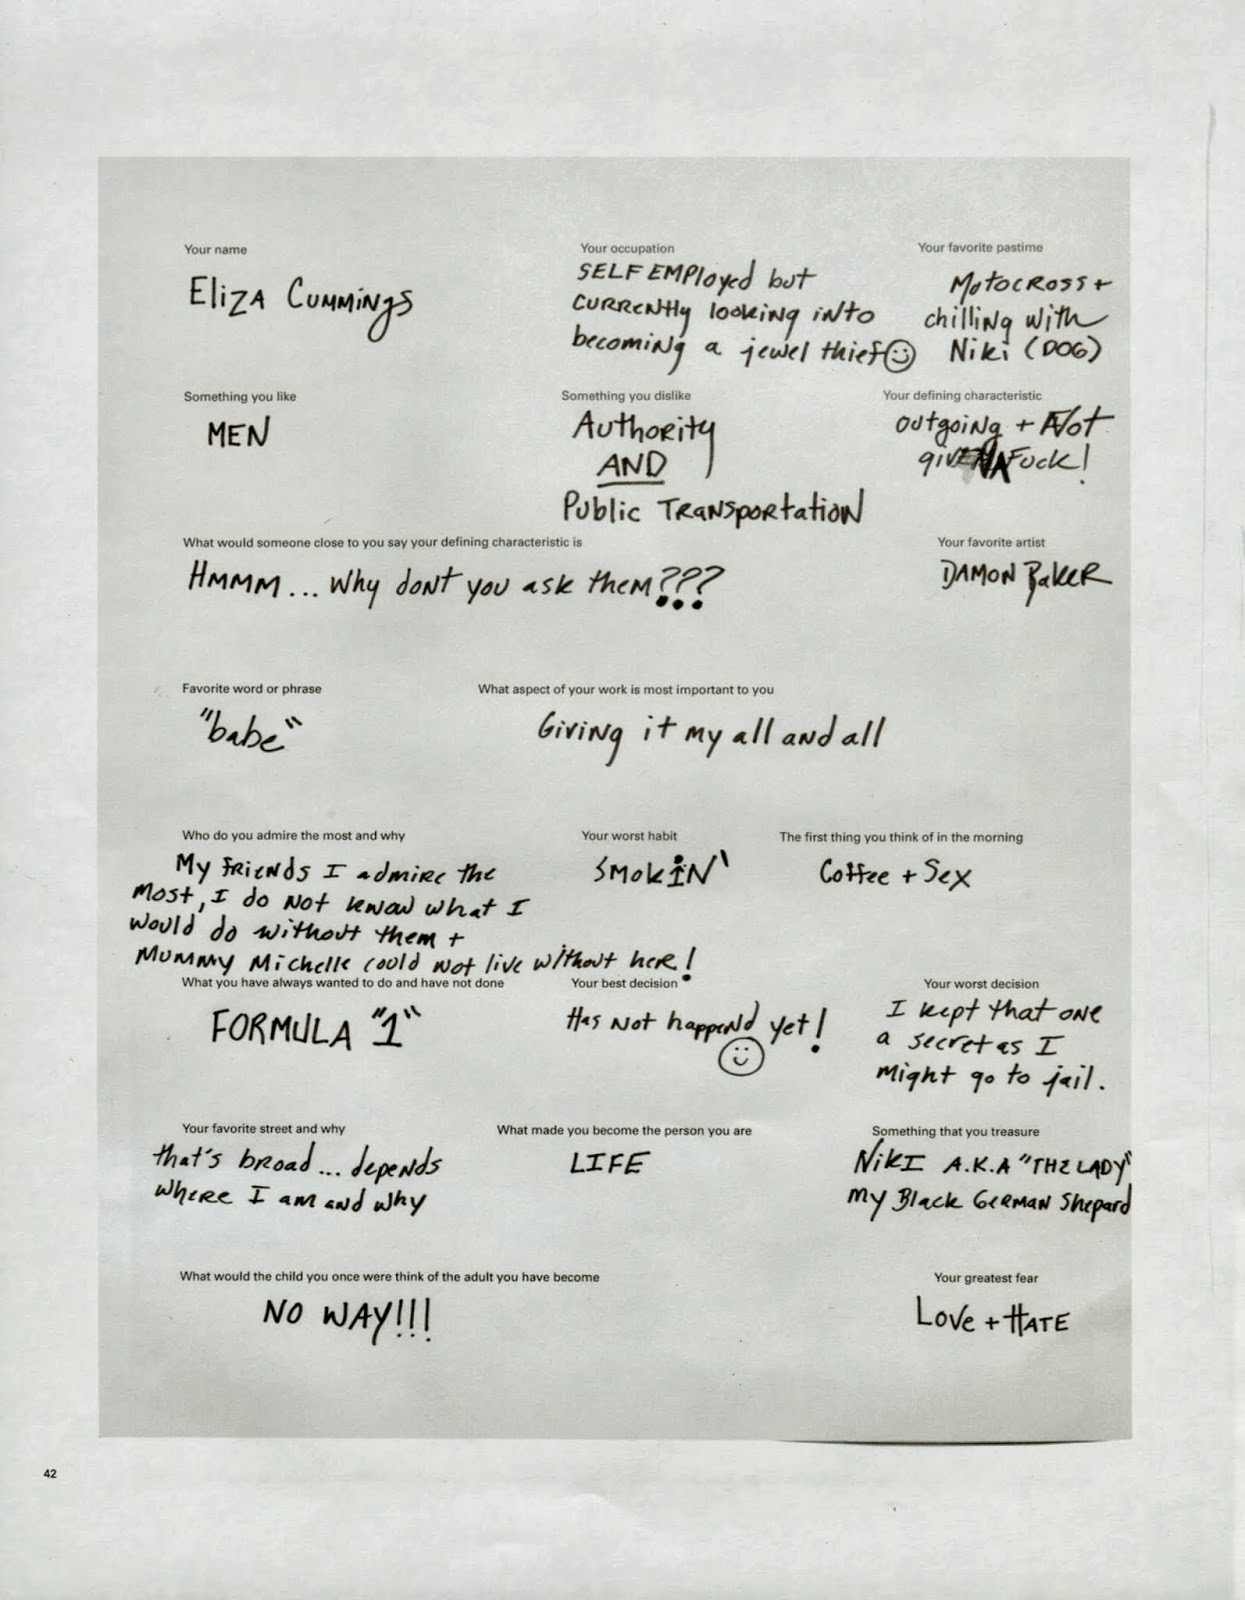 Your name
Eliza Cummings
Your occupation
SELF EMPloyed but
CURRENtly looking into
becoming a jewel thief
Your favorite pastime
Motocross +
chilling with
Niki (DOG)
Something you like
MEN
Something you dislike
Authority
AND
Public Transportation
Your defining characteristic
outgoing + Not
give A Fuck!
What would someone close to you say your defining characteristic is
HMMM... Why dont you ask them???
Your favorite artist
DAMON Baker
Favorite word or phrase
"babe"
What aspect of your work is most important to you
Giving it my all and all
Who do you admire the most and why
My friends I admire the
most, I do not know what I
would do without them +
Mummy Michelle could not live without here!
Your worst habit
Smokin'
The first thing you think of in the morning
Coffee + Sex
What you have always wanted to do and have not done
FORMULA "1"
Your best decision
Has not happend yet!
Your worst decision
I kept that one
a secret as I
might go to jail.
Your favorite street and why
that's broad... depends
where I am and why
What made you become the person you are
LIFE
Something that you treasure
Niki A.K.A "THE LADY"
my Black German Shepard
What would the child you once were think of the adult you have become
NO WAY!!!
Your greatest fear
Love + HATE
42